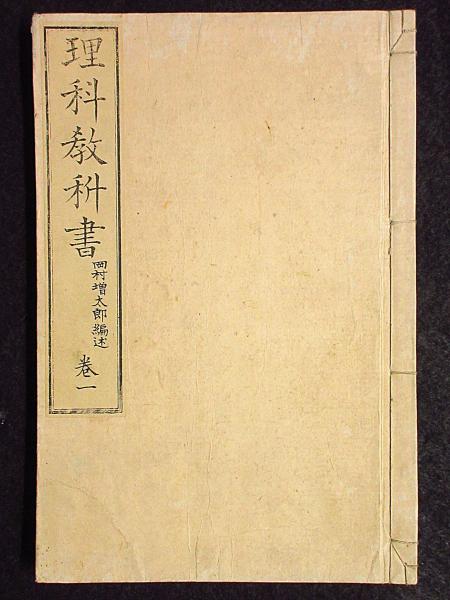 理科教科書
岡村増太郎編述
巻一